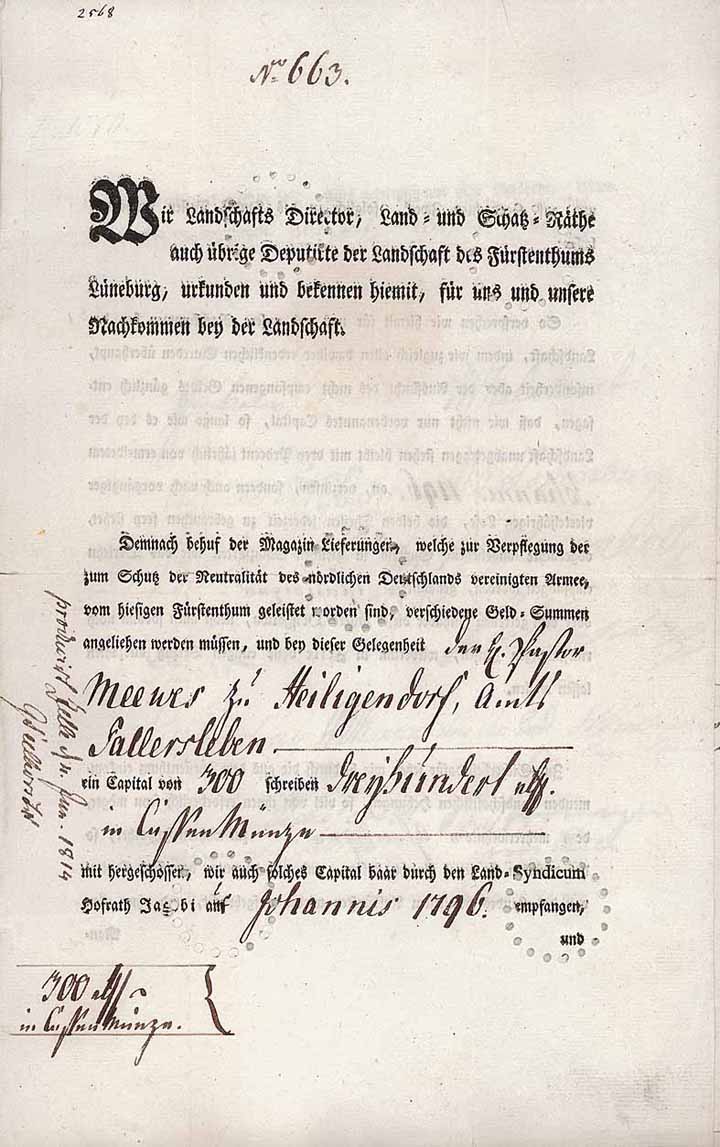 2568
Nro 663.
Wir Landschafts Director, Land- und Schatz-Räthe
auch übrige Deputirte der Landschaft des Fürstenthums
Lüneburg, urkunden und bekennen hiemit, für uns und unsere
Nachkommen bey der Landschaft.
Demnach behuf der Magazin Lieferungen, welche zur Verpflegung der
zum Schutz der Neutralität des nördlichen Deutschlands vereinigten Armee,
vom hiesigen Fürstenthum geleistet worden sind, verschiedene Geld-Summen
angeliehen werden müssen, und bey dieser Gelegenheit der H. Pastor
Meewes zu Heiligendorf, Amts
Fallersleben
ein Capital von 300 schreiben dreyhundert rthlr.
in CassenMünze
mit hergeschossen, wir auch solches Capital baar durch den Land-Syndicum
Hofrath Jacobi auf Johannis 1796. empfangen,
und
300 rthlr
in CassenMünze.
producirt Zelle Jun. 1814